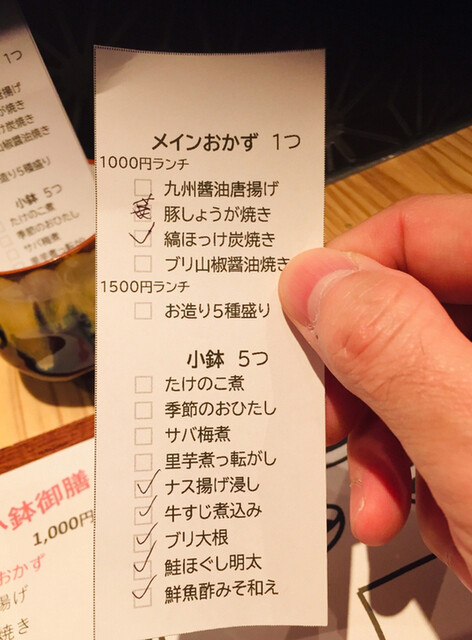 メインおかず 1つ
1000円ランチ
九州醤油唐揚げ
豚しょうが焼き
縞ほっけ炭焼き
ブリ山椒醤油焼き
1500円ランチ
お造り5種盛り
小鉢 5つ
たけのこ煮
季節のおひたし
サバ梅煮
里芋煮っ転がし
ナス揚げ浸し
牛すじ煮込み
ブリ大根
鮭ほぐし明太
鮮魚酢みそ和え
1つ
揚げ
焼き
炭焼き
椒醤油焼き
造り5種盛り
小鉢 5つ
たけのこ煮
季節のおひたし
サバ梅煮
鉢御膳
1,000円
おかず
揚げ
焼き